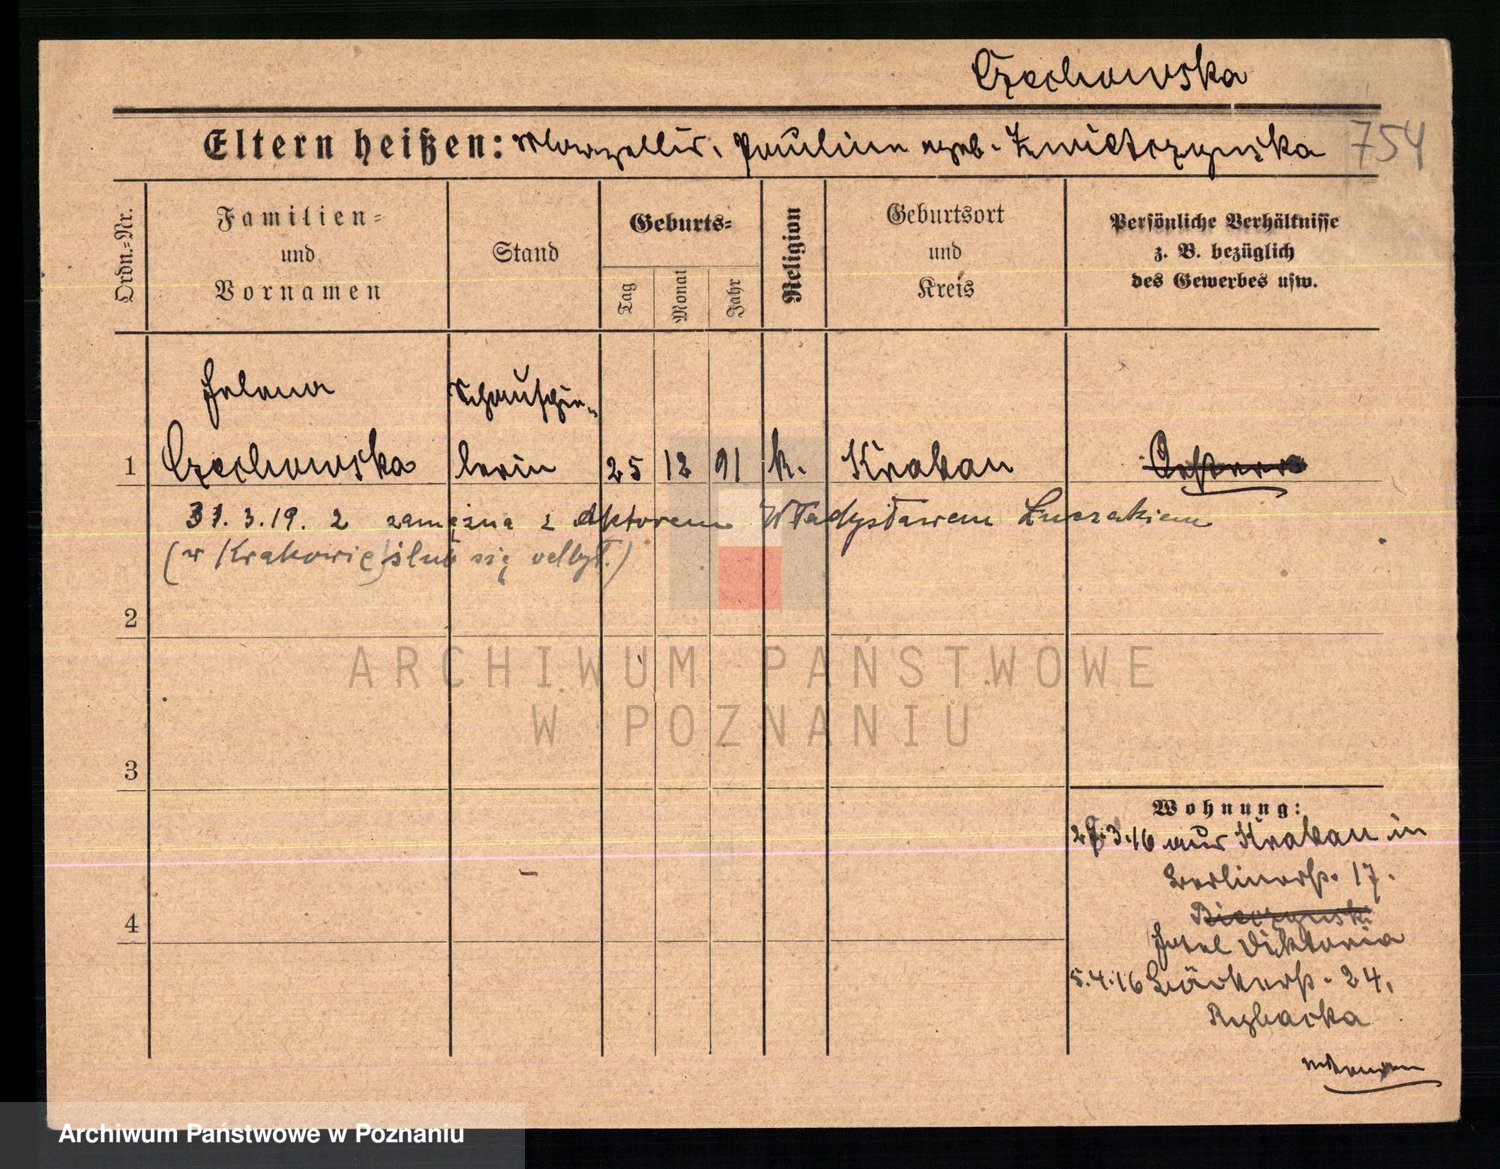 Czechowska
Eltern heißen: Marzellus. Pauline geb. Zwietrzynska 754
Ordn.-Nr.
Familien-
und
Vornamen
Stand
Geburts-
Tag
Monat
Jahr
Religion
Geburtsort
und
Kreis
Persönliche Verhältnisse
z. B. bezüglich
des Gewerbes usw.
Helena Schauspie-
1 Czechowska lerin 25 12 91 k. Krakau Österr
31.3.19. zamężna z Aktorem Władysławem
(w Krakowie ślub się odbył.)
2
ARCHIWUM PAŃSTWOWE
W POZNANIU
3
Wohnung:
3.16 aus Krakau in
Berlinerstr. 17.
Hotel Viktoria
5.4.16 Bäckerstr. 24,
4
Rybacka
Archiwum Państwowe w Poznaniu